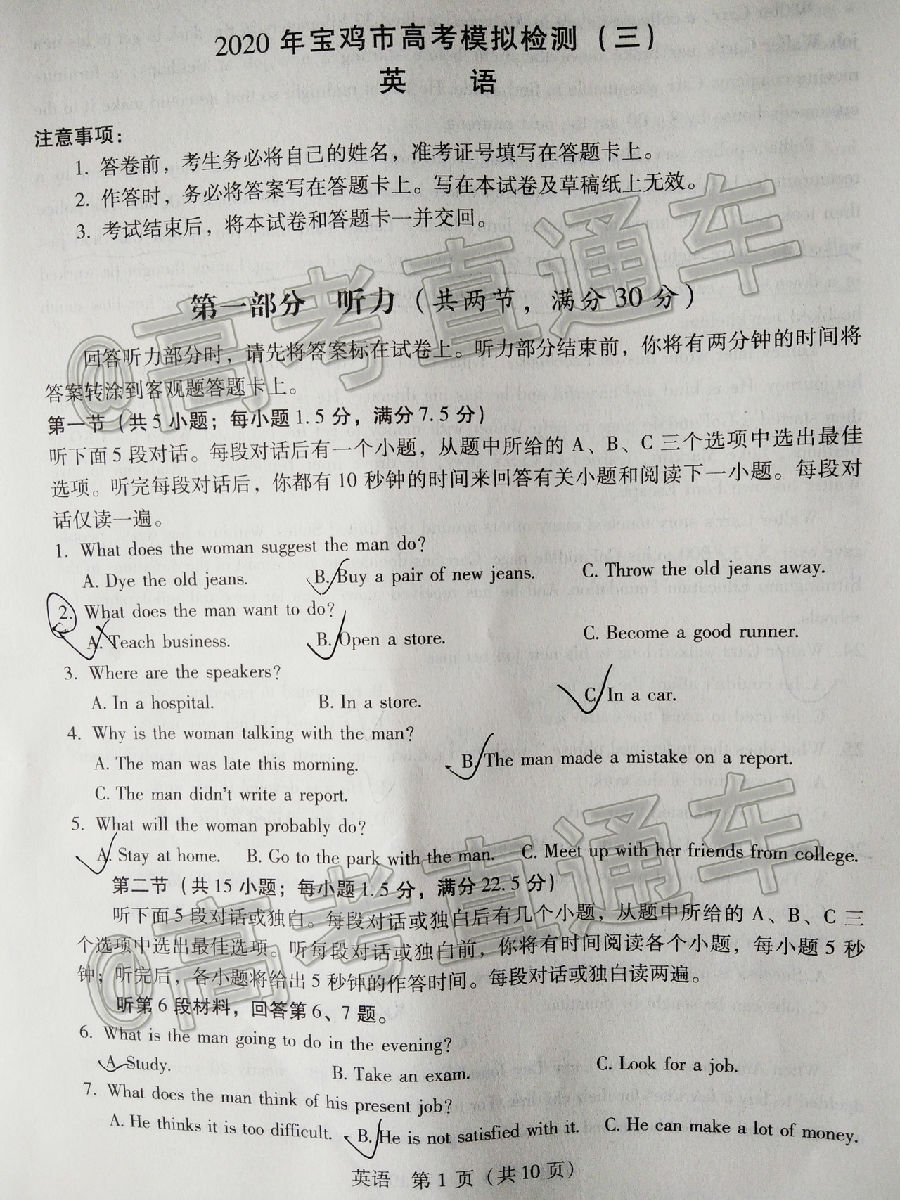 2020年宝鸡市高考模拟检测(三)
英 语
注意事项:
1. 答卷前,考生务必将自己的姓名,准考证号填写在答题卡上。
2. 作答时,务必将答案写在答题卡上。写在本试卷及草稿纸上无效。
3. 考试结束后,将本试卷和答题卡一并交回。
第一部分 听力(共两节,满分30分)
回答听力部分时,请先将答案标在试卷上。听力部分结束前,你将有两分钟的时间将
答案转涂到客观题答题卡上。
第一节(共5小题;每小题1.5分,满分7.5分)
听下面5段对话。每段对话后有一个小题,从题中所给的A、B、C三个选项中选出最佳
选项。听完每段对话后,你都有10秒钟的时间来回答有关小题和阅读下一小题。每段对
话仅读一遍。
1. What does the woman suggest the man do?
A. Dye the old jeans. B. Buy a pair of new jeans. C. Throw the old jeans away.
2. What does the man want to do?
A. Teach business. B. Open a store. C. Become a good runner.
3. Where are the speakers?
A. In a hospital. B. In a store. C. In a car.
4. Why is the woman talking with the man?
A. The man was late this morning. B. The man made a mistake on a report.
C. The man didn't write a report.
5. What will the woman probably do?
A. Stay at home. B. Go to the park with the man. C. Meet up with her friends from college.
第二节(共15小题;每小题1.5分,满分22.5分)
听下面5段对话或独白。每段对话或独白后有几个小题,从题中所给的A、B、C三
个选项中选出最佳选项。听每段对话或独白前,你将有时间阅读各个小题,每小题5秒
钟;听完后,各小题将给出5秒钟的作答时间。每段对话或独白读两遍。
听第6段材料,回答第6、7题。
6. What is the man going to do in the evening?
A. Study. B. Take an exam. C. Look for a job.
7. What does the man think of his present job?
A. He thinks it is too difficult. B. He is not satisfied with it. C. He can make a lot of money.
英语 第1页(共10页)
@高考直通车
@高考直通车